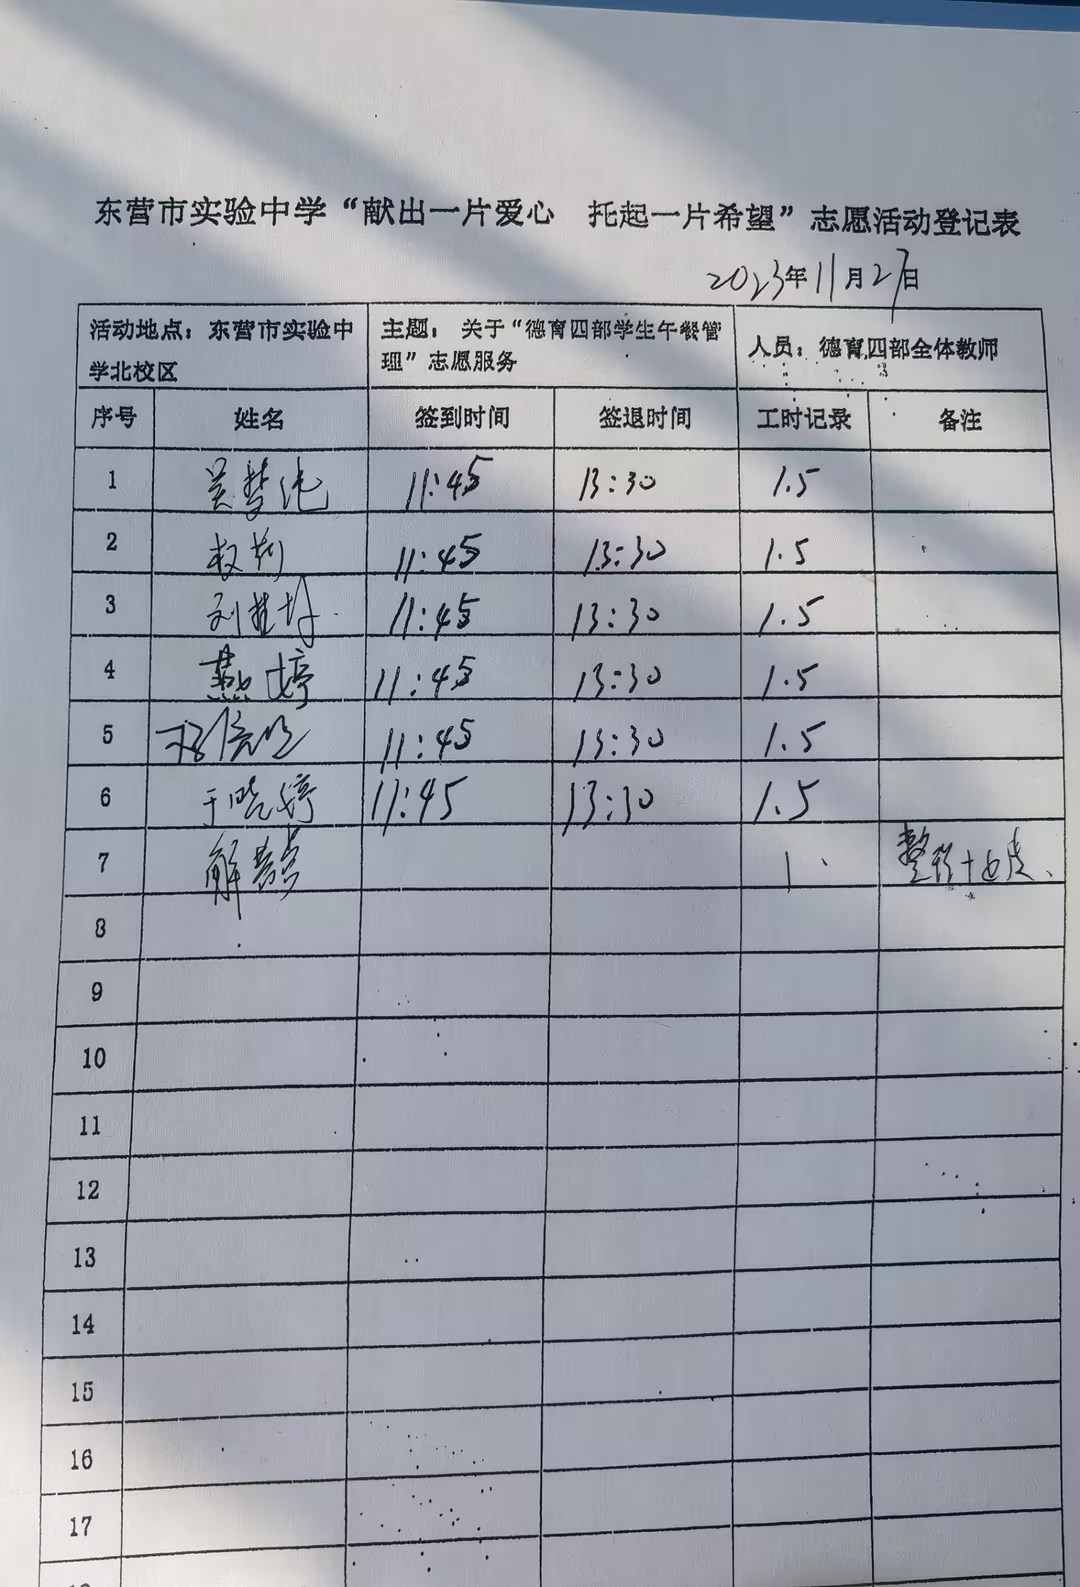 东营市实验中学“献出一片爱心 托起一片希望”志愿活动登记表
2023年11月27日
活动地点：东营市实验中
学北校区
主题：关于“德育四部学生午餐管
理”志愿服务
人员：德育四部全体教师
序号 姓名 签到时间 签退时间 工时记录 备注
1 吴梦 11:45 13:30 1.5
2 权莉 11:45 13:30 1.5
3 刘 11:45 13:30 1.5
4 燕婷 11:45 13:30 1.5
5 11:45 13:30 1.5
6 于晓婷 11:45 13:30 1.5
7 解 1 整理
8
9
10
11
12
13
14
15
16
17